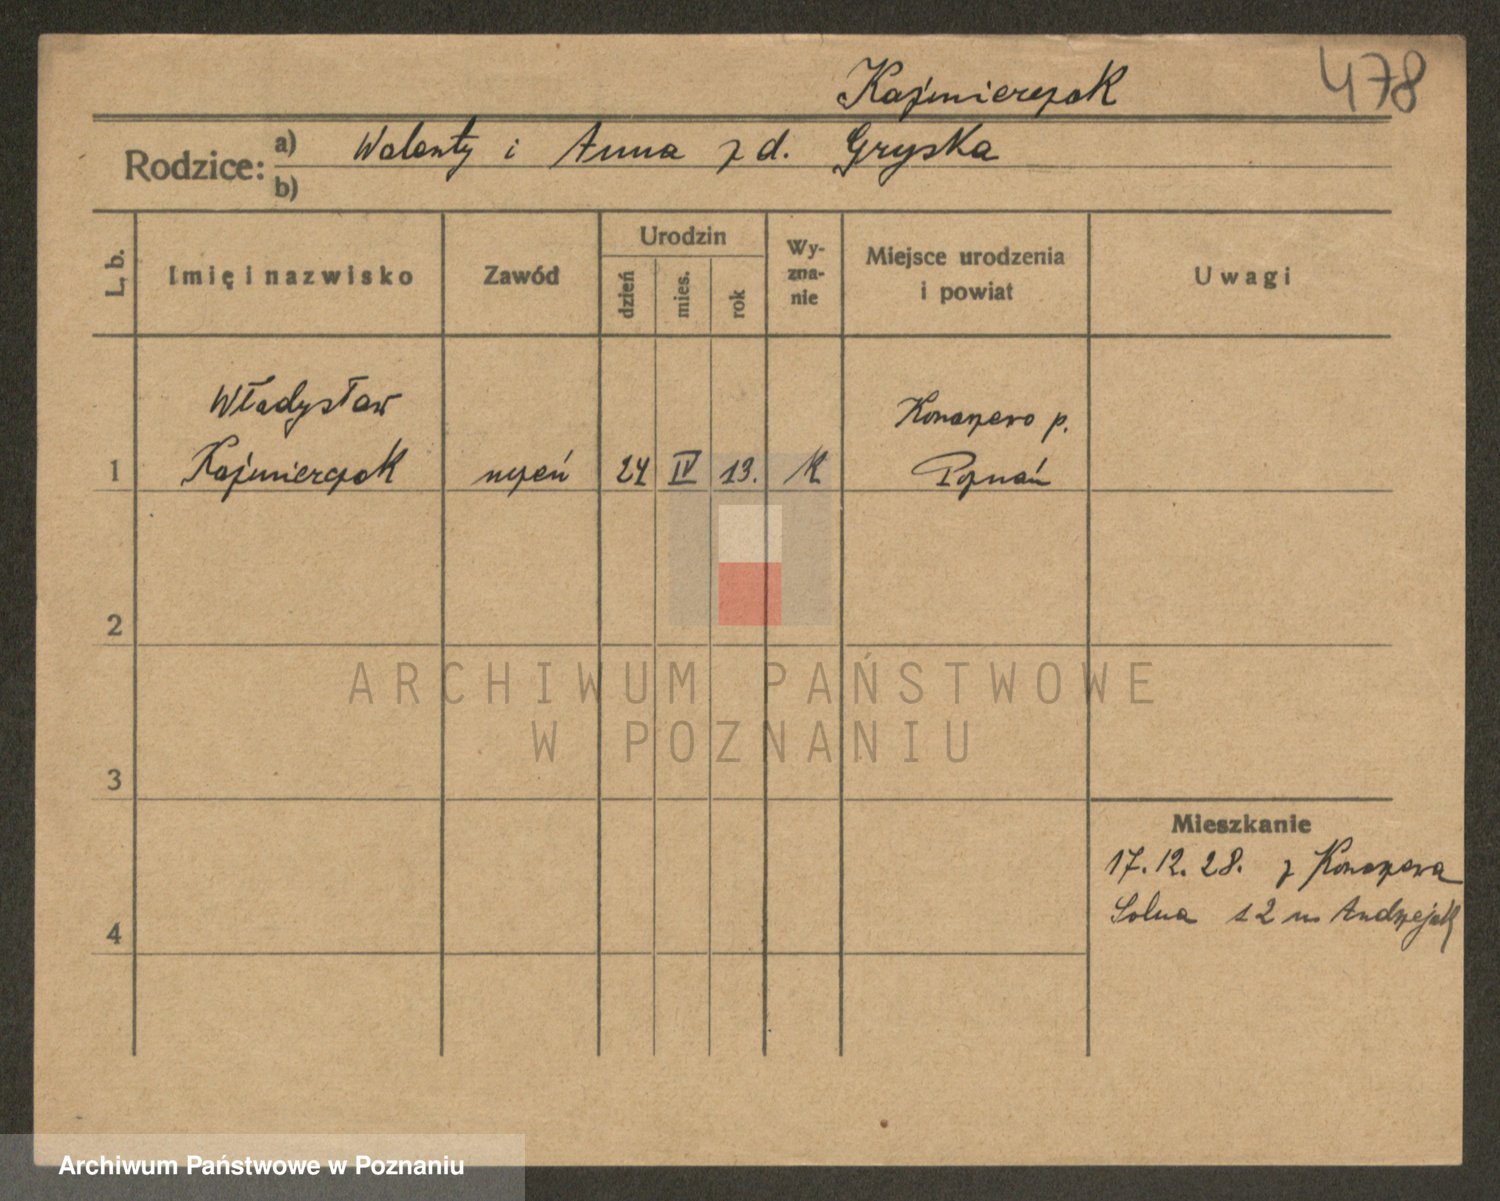 478
Kaźmierczak
Rodzice: a) Walenty i Anna z d. Gryska
b)
L. b.
Imię i nazwisko
Zawód
Urodzin
dzień
mies.
rok
Wy-
zna-
nie
Miejsce urodzenia
i powiat
Uwagi
Władysław
Konarzewo p.
1 Kaźmierczak uczeń 24 IV 13. K Poznań
2
ARCHIWUM PAŃSTWOWE
W POZNANIU
3
Mieszkanie
17.12.28. z Konarzewa
Solna 12 u Andrzejak
4
Archiwum Państwowe w Poznaniu